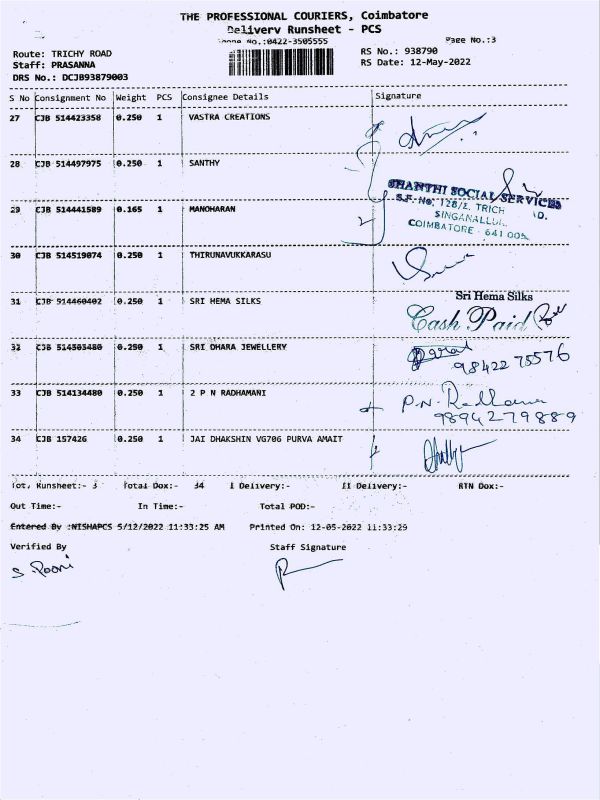 THE PROFESSIONAL COURIERS, Coimbatore
Delivery Runsheet - PCS
Phone No.:0422-3505555
Page No.:3
Route: TRICHY ROAD
RS No.: 938790
Staff: PRASANNA
RS Date: 12-May-2022
DRS No.: DCJB93879003
S No Consignment No Weight PCS Consignee Details Signature
27 CJB 514423358 0.250 1 VASTRA CREATIONS
28 CJB 514497975 0.250 1 SANTHY
SHANTHI SOCIAL SERVICES
S.F. No. 128/2, TRICH D.
29 CJB 514441589 0.165 1 MANOHARAN
SINGANALLU
COIMBATORE - 641 005
30 CJB 514519074 0.250 1 THIRUNAVUKKARASU
Sri Hema Silks
31 CJB 514460402 0.250 1 SRI HEMA SILKS
Cash Paid
32 CJB 514503480 0.250 1 SRI DHARA JEWELLERY
98422 75576
33 CJB 514134480 0.250 1 2 P N RADHAMANI
P.N. Radhama
9894279889
34 CJB 157426 0.250 1 JAI DHAKSHIN VG706 PURVA AMAIT
Tot. Runsheet:- 3 Total Dox:- 34 I Delivery:- II Delivery:- RTN Dox:-
Out Time:- In Time:- Total POD:-
Entered By :NISHAPCS 5/12/2022 11:33:25 AM Printed On: 12-05-2022 11:33:29
Verified By Staff Signature
S Poori